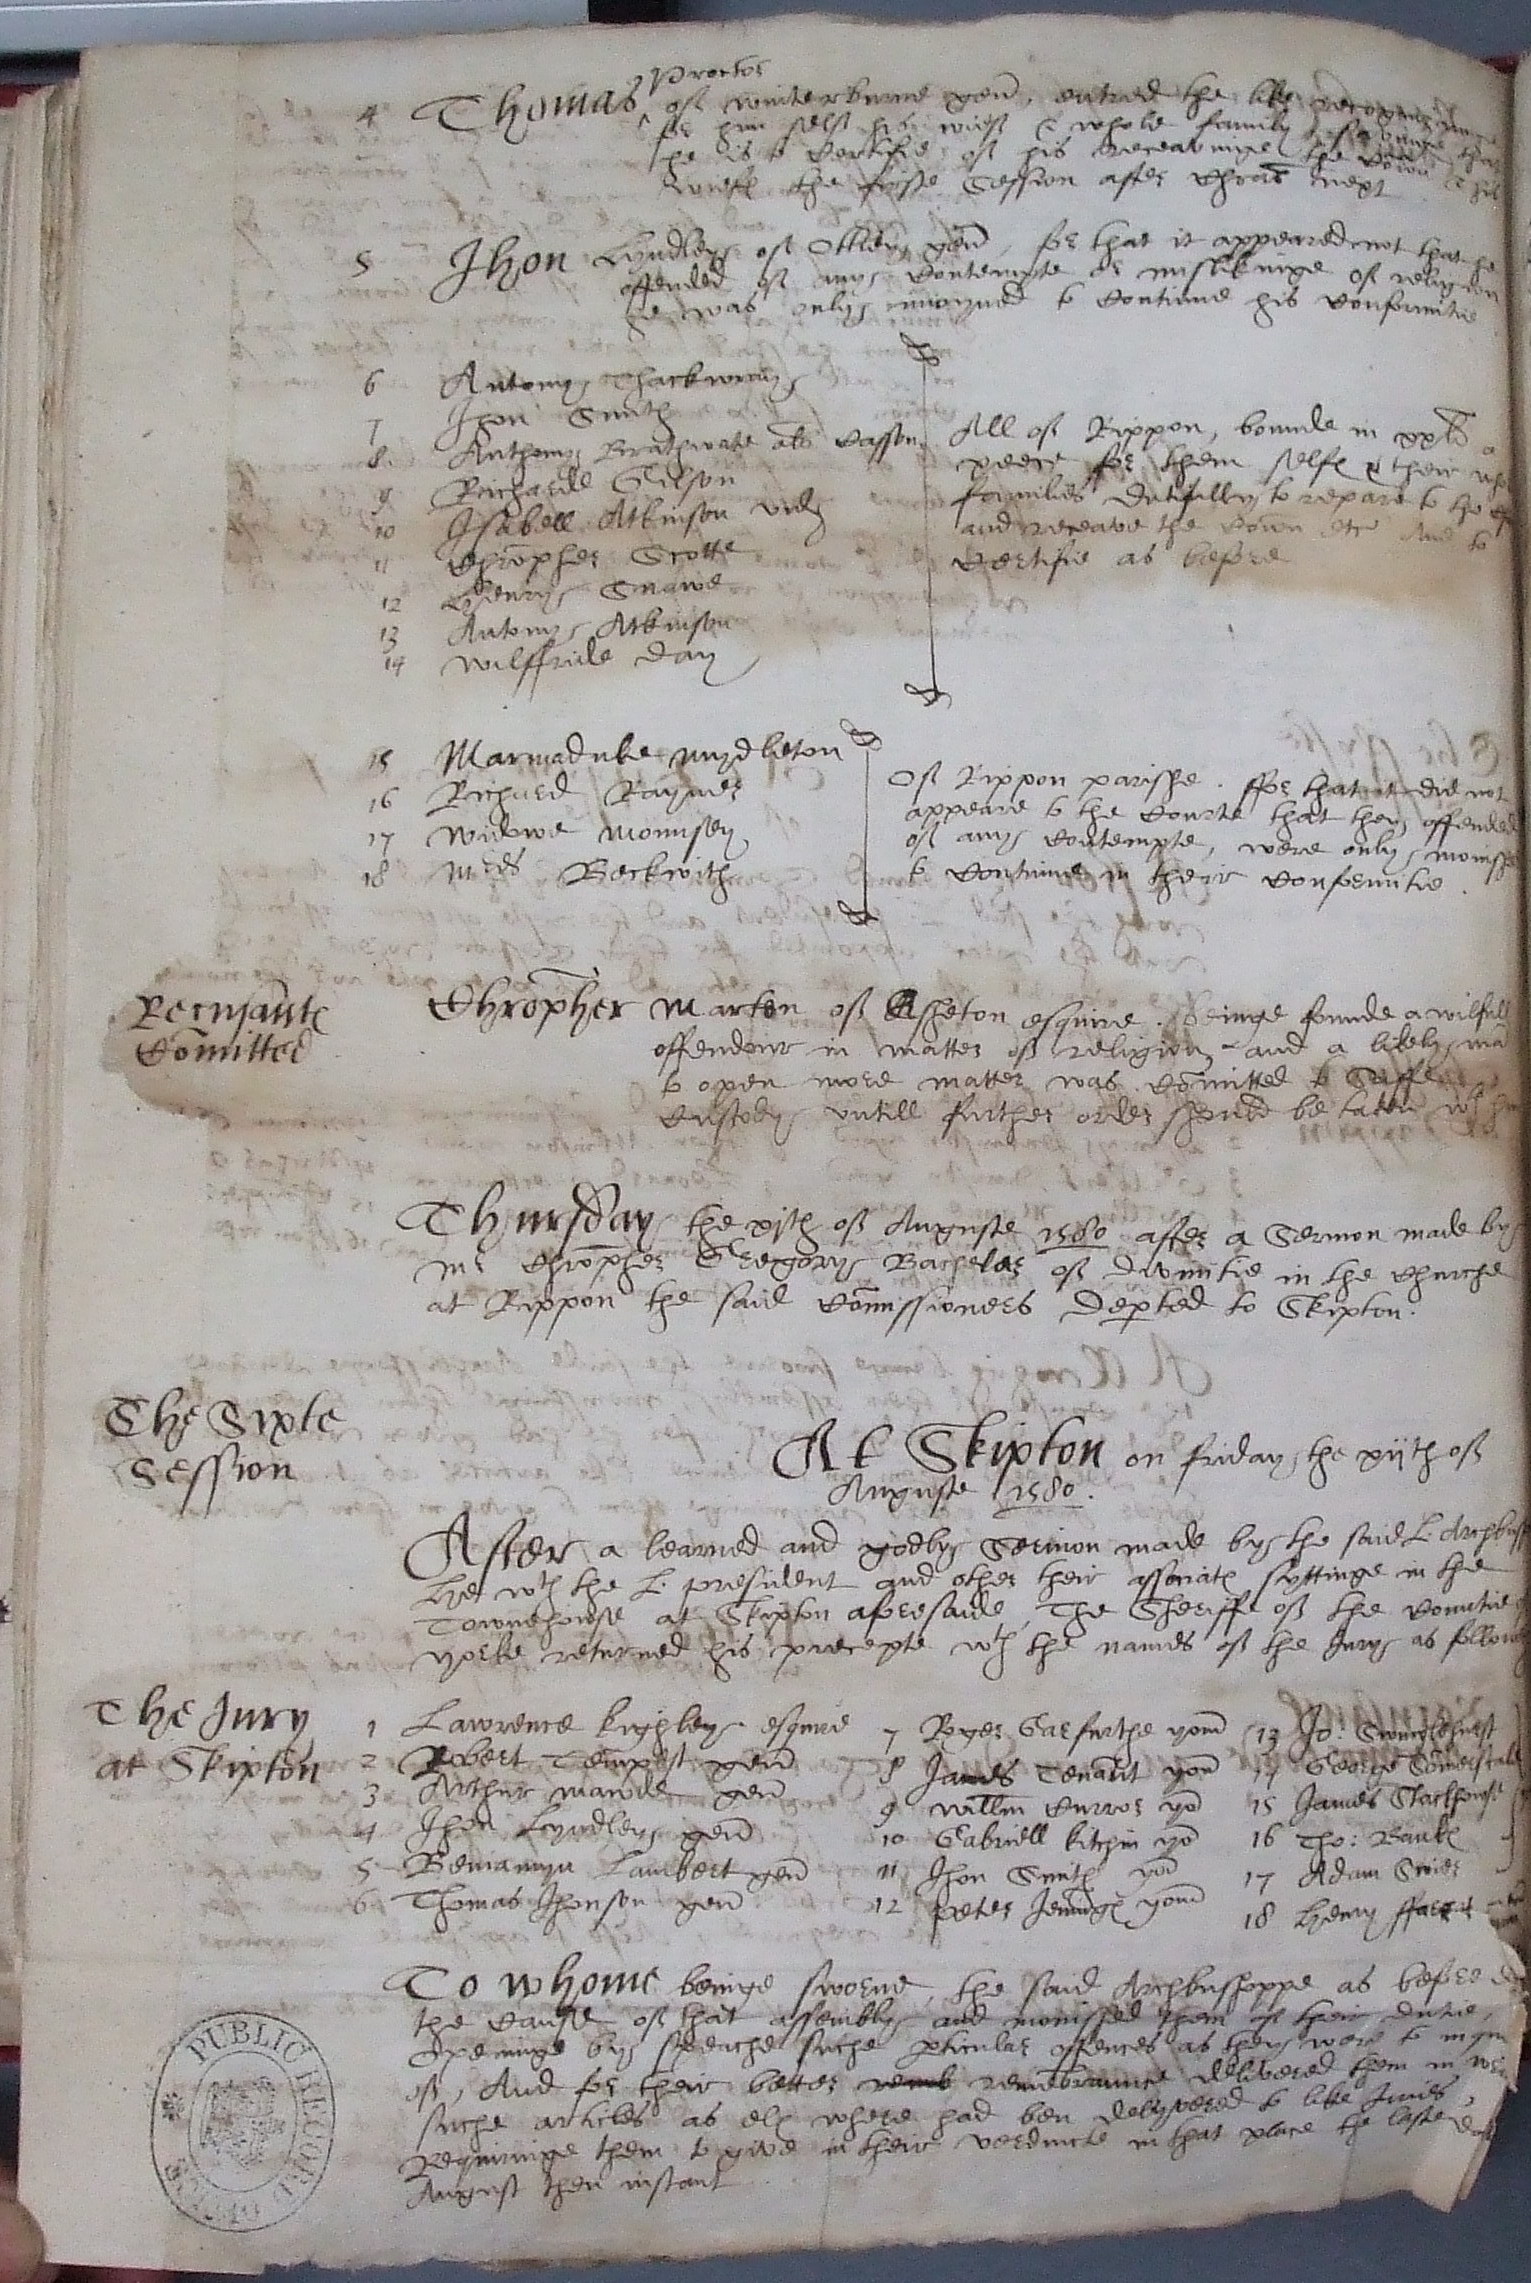 Proctor
4 Thomas ^ of winterburne gen, entred the like recognizaunce
for him self his wief & whole family savinge that
he is to certifie of his receavinge the Coion & his
wiefs the firste Session after Chras next
5 Jhon Lyndley of Otley gen, for that it appeared not that he
offended of any contempte or mislikinge of religion
he was only inioyned to continue his conformitie
6 Antony Thackwray
7 Jhon Smith
8 Anthony Brathwate als Casson
9 Richarde Gilson
10 Isabell Atkinson vid
11 Chropher Scotte
12 Henry Snawe
13 Antony Atkinson
14 Wilffride Day
All of Rippon, bounde in xxli a
peece for them selfs & their
families dutifully to repare to the
and receave the Coion etc And to
certifie as before
15 Marmaduke Mydleton
16 Richard Rayner
17 Widowe Mounsey
18 Mrs Beckwith
Of Rippon parishe. ffor that it did not
appeare to the Courte that they offended
of any contempte, were only monished
to continue in their conformitie.
Recusants
Comitted
Chropher Marton of Asheton esquire. beinge founde a wilfull
offendour in matter of religion, and a likely man
to open more matter was Comitted to Saffe
Custody untill further order should be taken wth
Thursday the xjth of Auguste 1580 after a Sermon made by
Mr Chropher Gregory Bacheler of divinitie in the Churche
at Rippon the said Comissioners depted to Skipton.
The Sixte
Session
At Skipton on friday the xijth of
Auguste 1580.
After a learned and godly Sermon made by the said L. Archbusshop
He wth the L. president and other their associats syttinge in the
Townehouse at Skipton aforesaide, The Sheriffe of the Countie
Yorke returned his precepte wth the names of the Jury as
The Jury
at Skipton
1 Lawrence Kighley esquire
2 Robert Tempest gen
3 Arthur Mawde gen
4 Jhon Lyndley gen
5 Beniamyn Lambert gen
6 Thomas Jhonson gen
7 Roger Garfurthe yom
8 James Tenant yom
9 Willm Currer yo
10 Gabriell Kitchin yo
11 Jhon Smith yo
12 Peter Jennings yom
13 Jo: Swinglehurst
14 George Somerscale
15 James Stackhouse
16 Tho: Banks
17 Adam
18 Henry
To whome beinge sworne, the said Archbushoppe as before
the cause of that assembly and monished them of their dutie,
Openinge by speache suche pticular offences as they were to
of, And for their better remembraunce delivered them in
suche articles as els where had ben delyvered to like Juries,
Requiringe them to give in their verdicte in that place the laste
August then instant
PUBLIC RECORD OFFICE